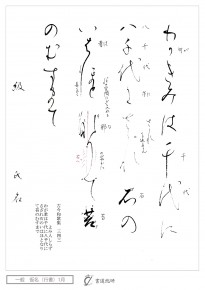 わかきみは千代に
八千代にさゝれ石の
いはほとなりて苔
のむすまて
級
氏名
古今和歌集 三四三
よみ人しらず
わが君は千代に八千代に
さざれ石のいはほとなりて
苔のむすまで
一般
1月